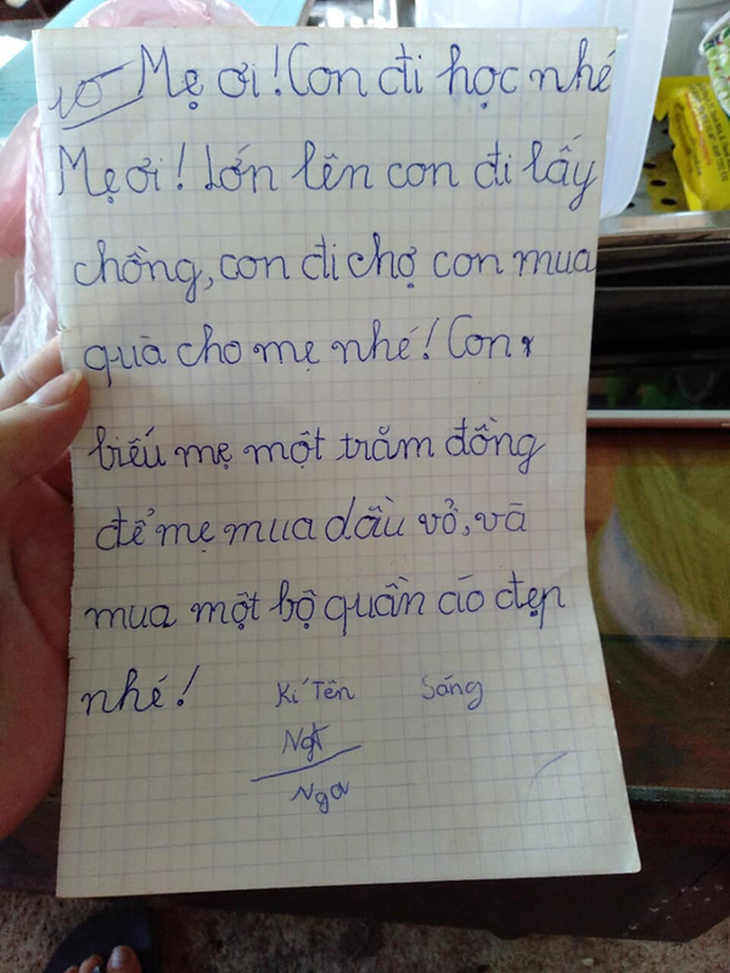 Mẹ ơi! Con đi học nhé
Mẹ ơi! Lớn lên con đi lấy
chồng, con đi chợ con mua
quà cho mẹ nhé! Con
biếu mẹ một trăm đồng
để mẹ mua dầu vỏ, và
mua một bộ quần áo đẹp
nhé! Kí Tên Sáng
Nga